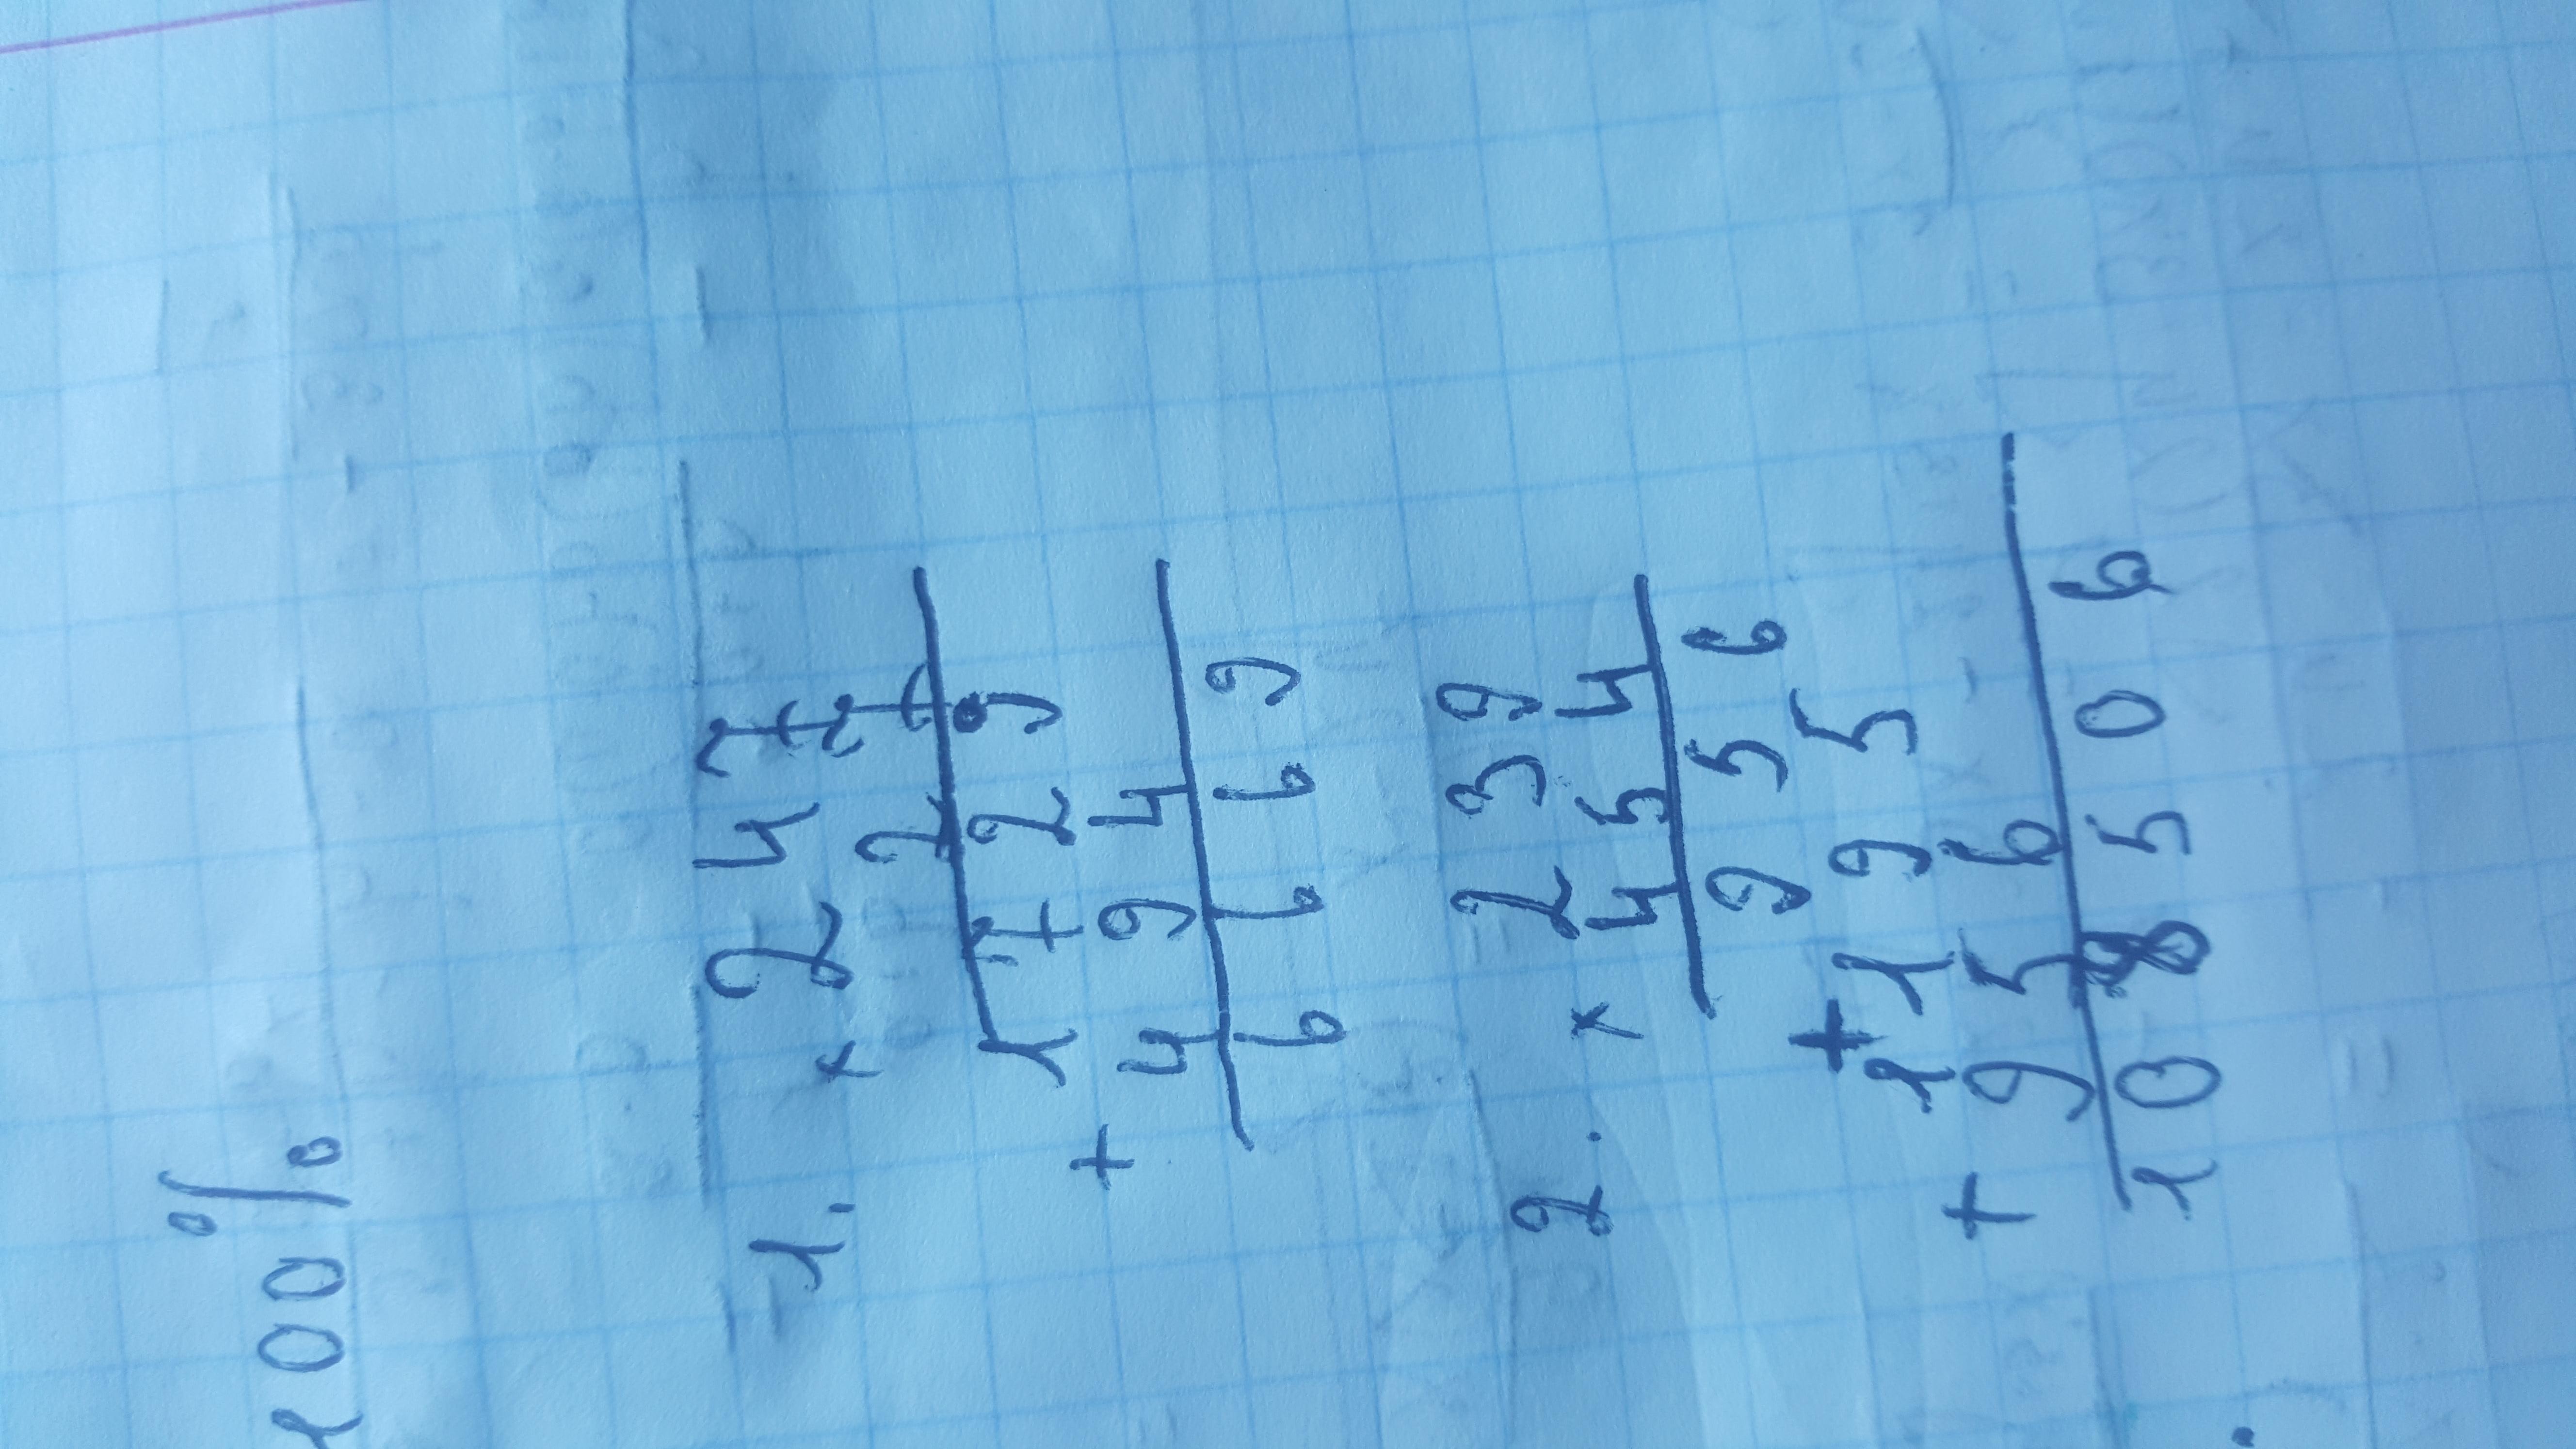 100%
1. 247
× 27
1729
+ 494
6669
2. 239
× 454
956
+ 1195
+ 956
108506